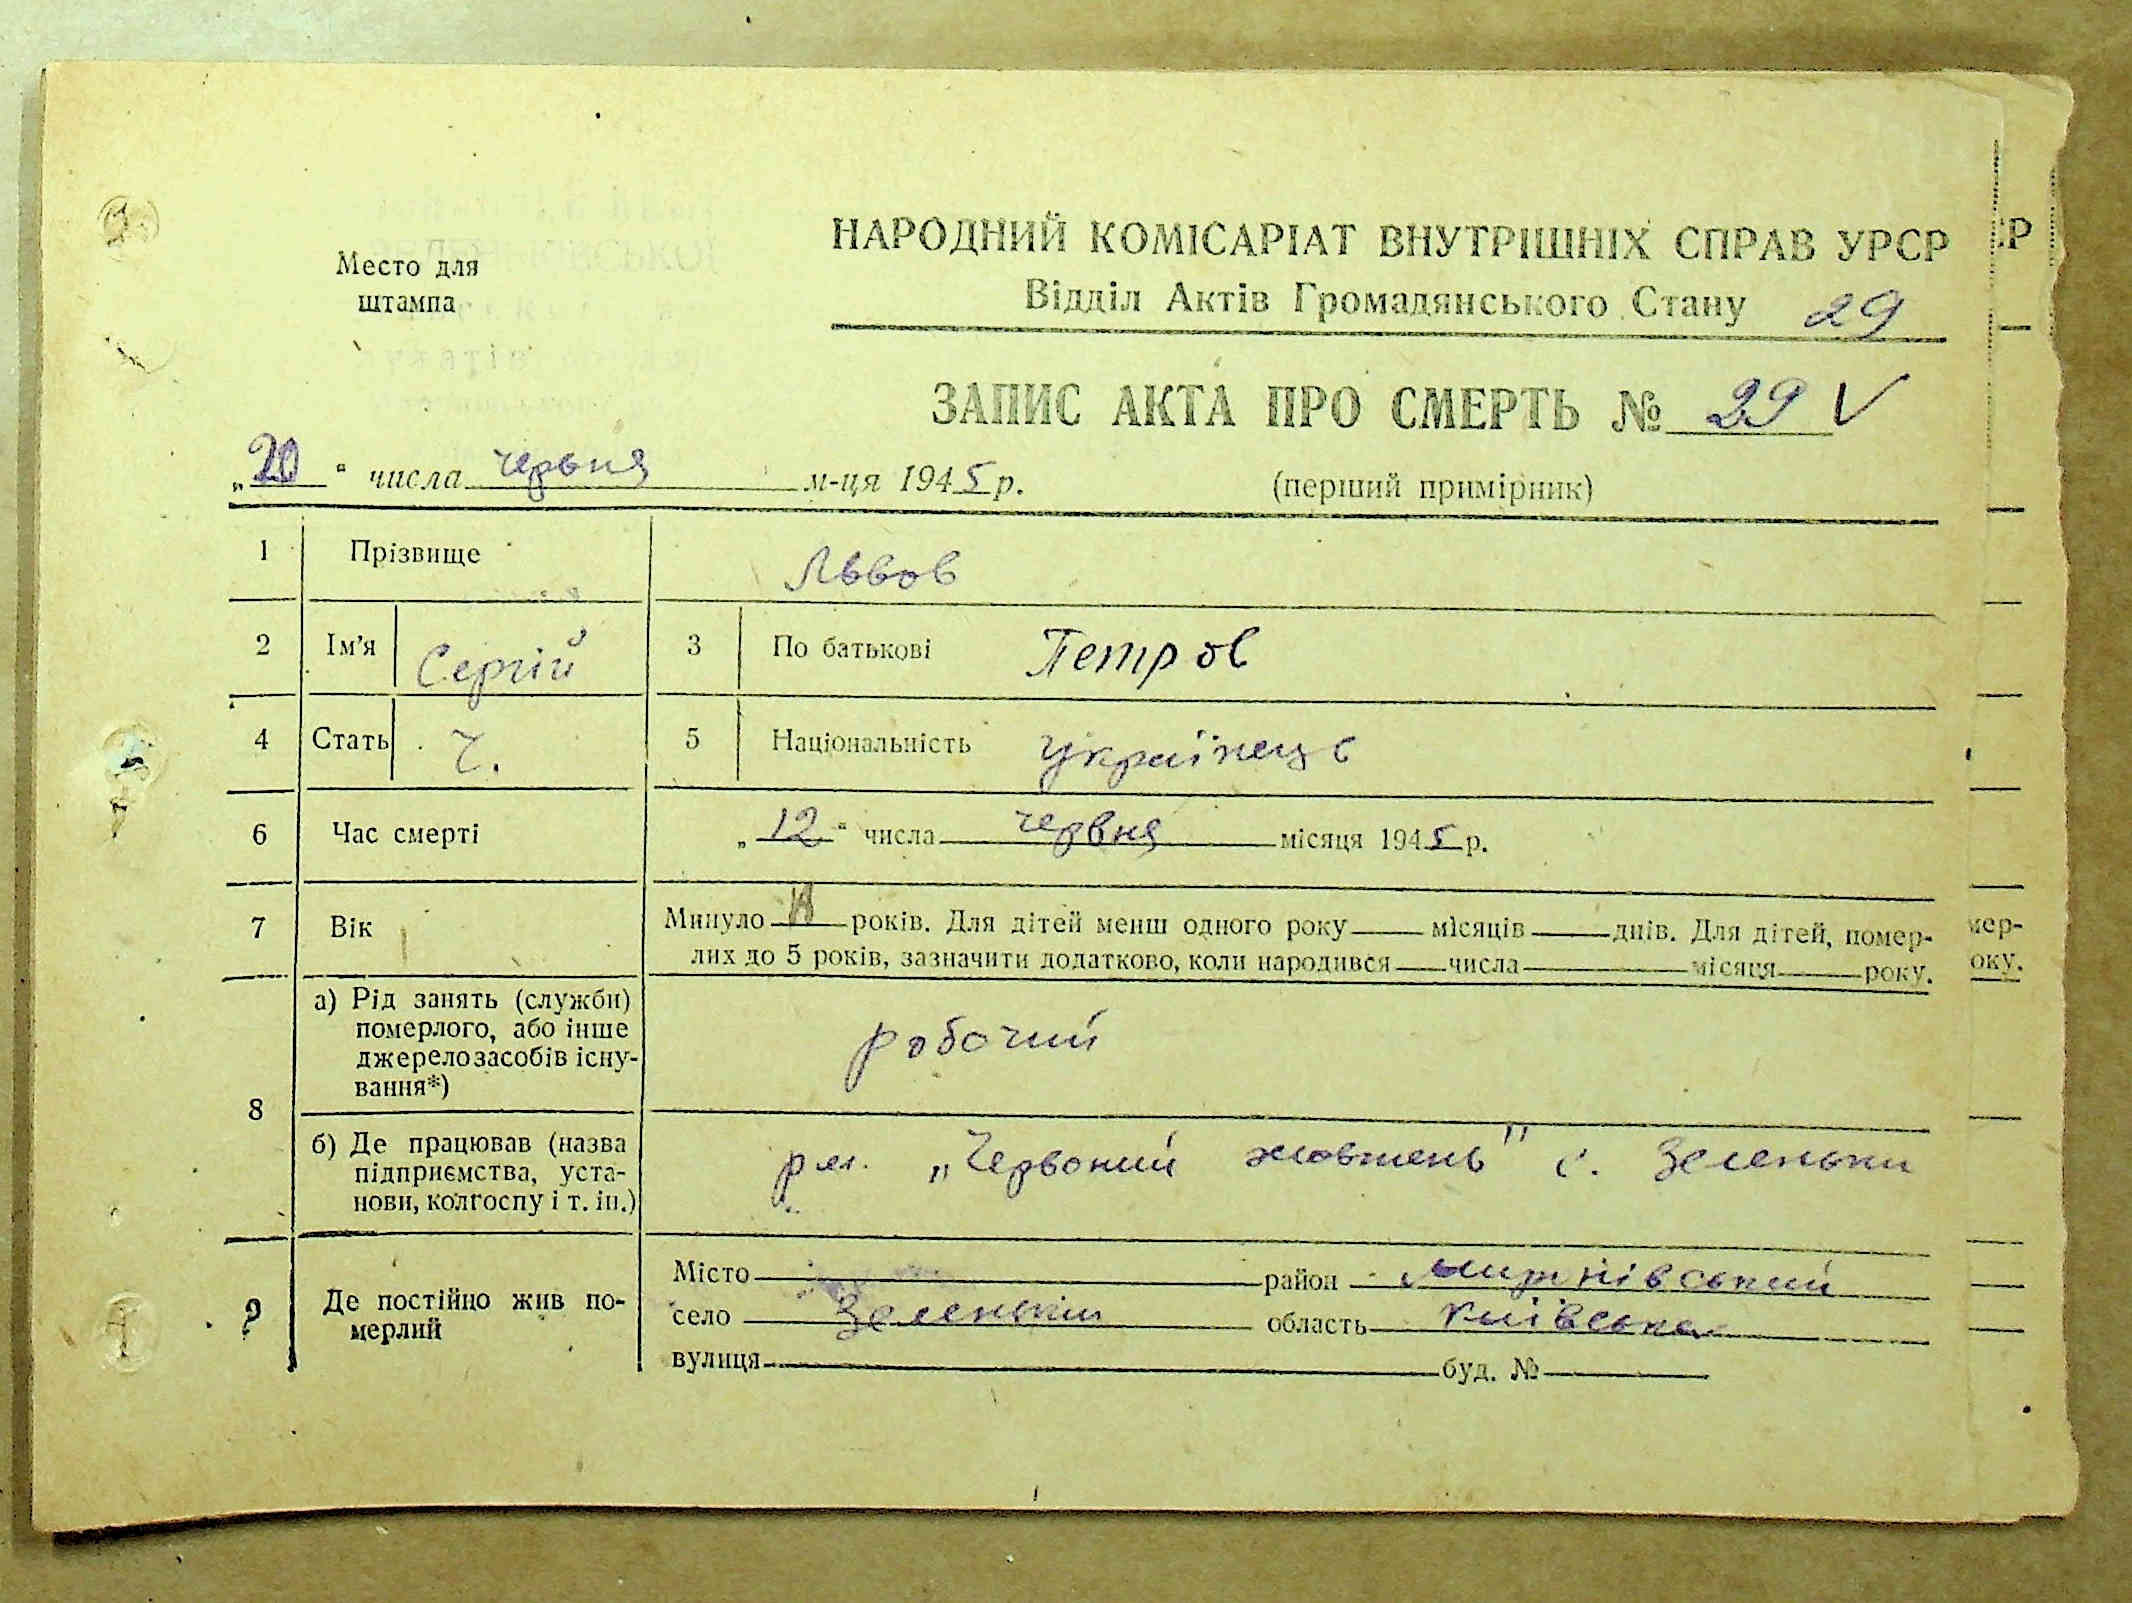 Место для
штампа
НАРОДНИЙ КОМІСАРІАТ ВНУТРІШНІХ СПРАВ УРСР
Відділ Актів Громадянського Стану 29
ЗАПИС АКТА ПРО СМЕРТЬ № 29 V
„20“ числа червня м-ця 1945 р. (перший примірник)
1 Прізвище Львов
2 Ім'я Сергій 3 По батькові Петров
4 Стать Ч. 5 Національність Українець
6 Час смерті „12“ числа червня місяця 1945 р.
7 Вік Минуло років. Для дітей менш одного року місяців днів. Для дітей, помер-
лих до 5 років, зазначити додатково, коли народився числа місяця року.
8 а) Рід занять (служби)
померлого, або інше
джерело засобів існу-
вання*)
робочий
б) Де працював (назва
підприємства, уста-
нови, колгоспу і т. ін.)
„Червоний жовтень" с. Зеленьки
9 Де постійно жив по-
мерлий
Місто район Миронівський
село Зеленьки область Київська
вулиця буд. №
СР
мер-
оку.